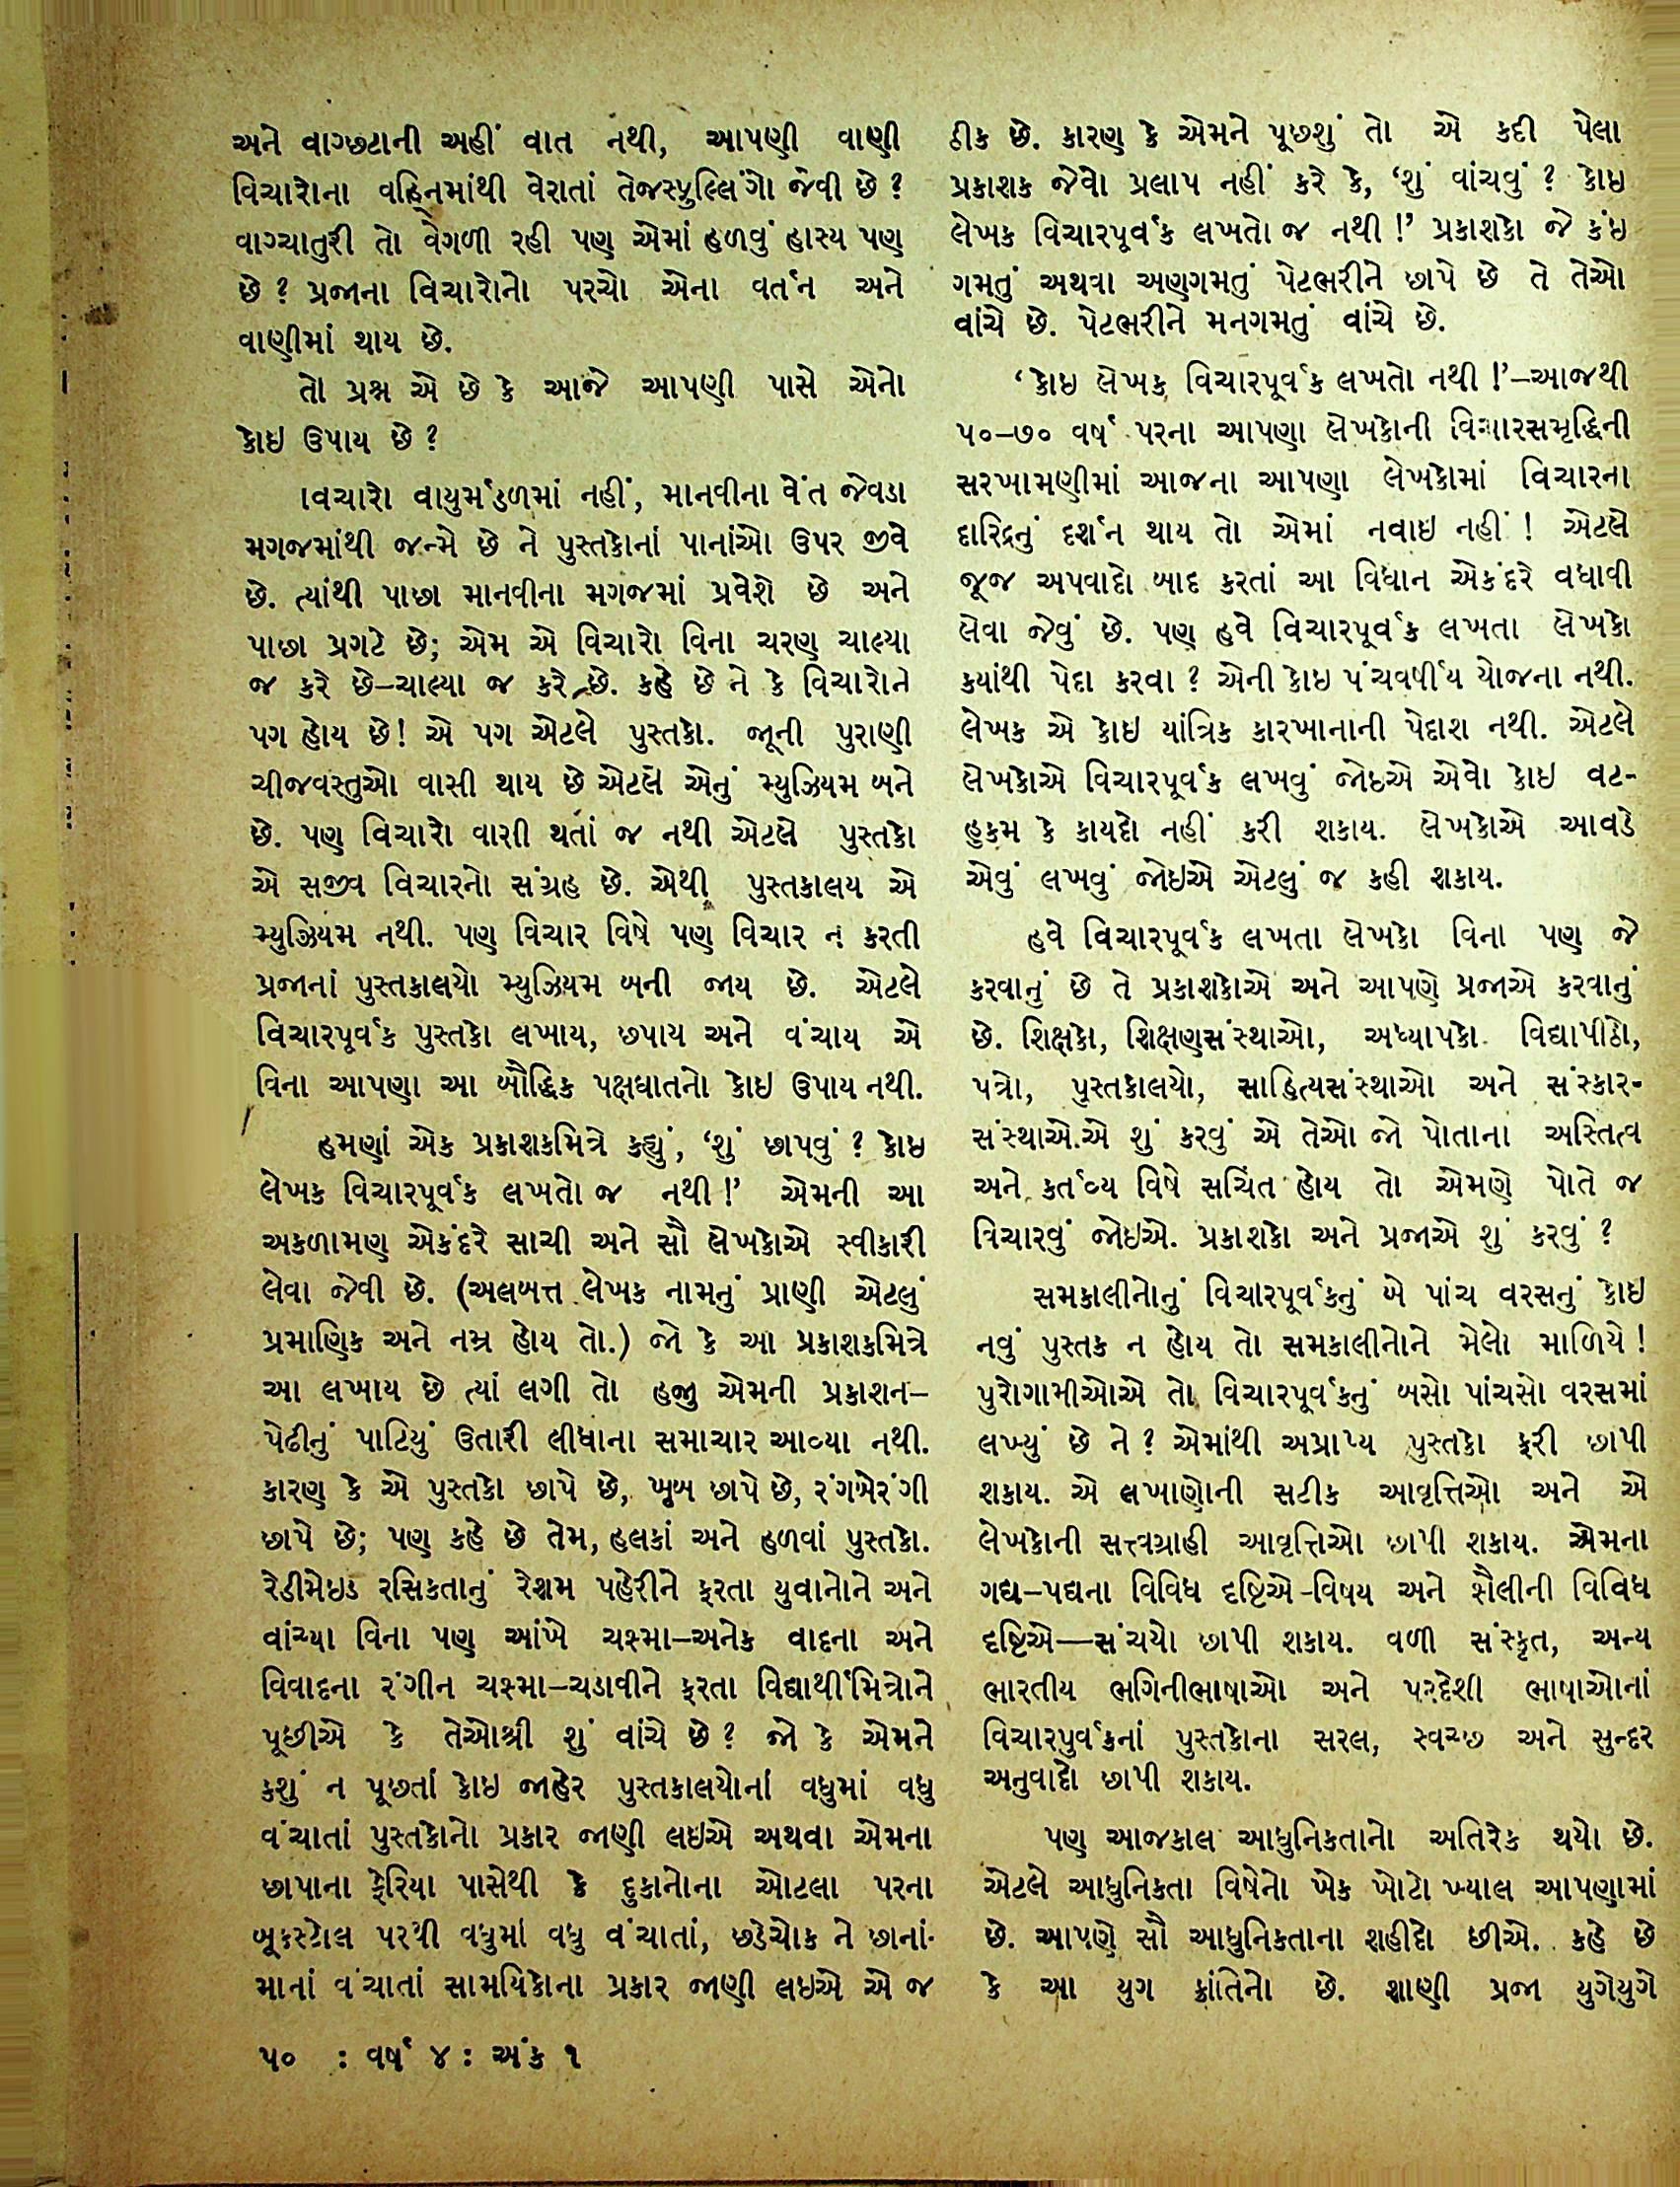 અને વાગ્છટાની અહીં વાત નથી, આપણી વાણી
વિચારોના વહ્નિમાંથી વેરાતાં તેજસ્ફુલ્લિંગો જેવી છે ?
વાગ્ચાતુરી તો વેગળી રહી પણ એમાં હળવું હાસ્ય પણ
છે ? પ્રજાના વિચારોનો પરચો એના વર્તન અને
વાણીમાં થાય છે.
તો પ્રશ્ન એ છે કે આજે આપણી પાસે એનો
કોઇ ઉપાય છે ?
વિચારો વાયુમંડળમાં નહીં, માનવીના વેંત જેવડા
મગજમાંથી જન્મે છે ને પુસ્તકોનાં પાનાંઓ ઉપર જીવે
છે. ત્યાંથી પાછા માનવીના મગજમાં પ્રવેશે છે અને
પાછા પ્રગટે છે; એમ એ વિચારો વિના ચરણ ચાલ્યા
જ કરે છે–ચાલ્યા જ કરે છે. કહે છે ને કે વિચારોને
પગ હોય છે! એ પગ એટલે પુસ્તકો. જૂની પુરાણી
ચીજવસ્તુઓ વાસી થાય છે એટલે એનું મ્યુઝિયમ બને
છે. પણ વિચારો વાસી થતાં જ નથી એટલે પુસ્તકો
એ સજીવ વિચારનો સંગ્રહ છે. એથી પુસ્તકાલય એ
મ્યુઝિયમ નથી. પણ વિચાર વિષે પણ વિચાર ન કરતી
પ્રજાનાં પુસ્તકાલયો મ્યુઝિયમ બની જાય છે. એટલે
વિચારપૂર્વક પુસ્તકો લખાય, છપાય અને વંચાય એ
વિના આપણા આ બૌદ્ધિક પક્ષઘાતનો કોઇ ઉપાય નથી.
હમણાં એક પ્રકાશકમિત્રે કહ્યું, ‘શું છાપવું ? કોઇ
લેખક વિચારપૂર્વક લખતો જ નથી !’ એમની આ
અકળામણ એકંદરે સાચી અને સૌ લેખકોએ સ્વીકારી
લેવા જેવી છે. (અલબત્ત લેખક નામનું પ્રાણી એટલું
પ્રમાણિક અને નમ્ર હોય તો.) જો કે આ પ્રકાશકમિત્રે
આ લખાય છે ત્યાં લગી તો હજી એમની પ્રકાશન–
પેઢીનું પાટિયું ઉતારી લીધાના સમાચાર આવ્યા નથી.
કારણ કે એ પુસ્તકો છાપે છે, ખૂબ છાપે છે, રંગબેરંગી
છાપે છે; પણ કહે છે તેમ, હલકાં અને હળવાં પુસ્તકો.
રેડીમેઇડ રસિકતાનું રેશમ પહેરીને ફરતા યુવાનોને અને
વાંચ્યા વિના પણ આંખે ચશ્મા–અનેક વાદના અને
વિવાદના રંગીન ચશ્મા–ચડાવીને ફરતા વિદ્યાર્થીમિત્રોને
પૂછીએ કે તેઓશ્રી શું વાંચે છે ? જો કે એમને
કશું ન પૂછતાં કોઇ જાહેર પુસ્તકાલયોનાં વધુમાં વધુ
વંચાતાં પુસ્તકોનો પ્રકાર જાણી લઇએ અથવા એમના
છાપાના ફેરિયા પાસેથી કે દુકાનોના ઓટલા પરના
બૂકસ્ટોલ પરથી વધુમાં વધુ વંચાતાં, છડેચોક ને છાનાં-
માનાં વંચાતાં સામયિકોના પ્રકાર જાણી લઇએ એ જ
૫૦ : વર્ષ ૪ : અંક ૧
ઠીક છે. કારણ કે એમને પૂછશું તો એ કદી પેલા
પ્રકાશક જેવો પ્રલાપ નહીં કરે કે, ‘શું વાંચવું ? કોઇ
લેખક વિચારપૂર્વક લખતો જ નથી !’ પ્રકાશકો જે કંઇ
ગમતું અથવા અણગમતું પેટભરીને છાપે છે તે તેઓ
વાંચે છે. પેટભરીને મનગમતું વાંચે છે.
‘કોઇ લેખક વિચારપૂર્વક લખતો નથી !’–આજથી
૫૦–૭૦ વર્ષ પરના આપણા લેખકોની વિચારસમૃદ્ધિની
સરખામણીમાં આજના આપણા લેખકોમાં વિચારના
દારિદ્રનું દર્શન થાય તો એમાં નવાઇ નહીં ! એટલે
જૂજ અપવાદો બાદ કરતાં આ વિધાન એકંદરે વધાવી
લેવા જેવું છે. પણ હવે વિચારપૂર્વક લખતા લેખકો
કયાંથી પેદા કરવા ? એની કોઇ પંચવર્ષીય યોજના નથી.
લેખક એ કોઇ યાંત્રિક કારખાનાની પેદાશ નથી. એટલે
લેખકોએ વિચારપૂર્વક લખવું જોઇએ એવો કોઇ વટ-
હુકમ કે કાયદો નહીં કરી શકાય. લેખકોએ આવડે
એવું લખવું જોઇએ એટલું જ કહી શકાય.
હવે વિચારપૂર્વક લખતા લેખકો વિના પણ જે
કરવાનું છે તે પ્રકાશકોએ અને આપણે પ્રજાએ કરવાનું
છે. શિક્ષકો, શિક્ષણસંસ્થાઓ, અધ્યાપકો. વિદ્યાપીઠો,
પત્રો, પુસ્તકાલયો, સાહિત્યસંસ્થાઓ અને સંસ્કાર-
સંસ્થાએ.એ શું કરવું એ તેઓ જો પોતાના અસ્તિત્વ
અને કર્તવ્ય વિષે સચિંત હોય તો એમણે પોતે જ
વિચારવું જોઇએ. પ્રકાશકો અને પ્રજાએ શું કરવું ?
સમકાલીનોનું વિચારપૂર્વકનું બે પાંચ વરસનું કોઇ
નવું પુસ્તક ન હોય તો સમકાલીનોને મેલો માળિયે !
પુરોગામીઓએ તો વિચારપૂર્વકનું બસો પાંચસો વરસમાં
લખ્યું છે ને ? એમાંથી અપ્રાપ્ય પુસ્તકો ફરી છાપી
શકાય. એ લખાણોની સટીક આવૃત્તિઓ અને એ
લેખકોની સત્ત્વગ્રાહી આવૃત્તિઓ છાપી શકાય. એમના
ગદ્ય–પદ્યના વિવિધ દૃષ્ટિએ-વિષય અને શૈલીની વિવિધ
દૃષ્ટિએ—સંચયો છાપી શકાય. વળી સંસ્કૃત, અન્ય
ભારતીય ભગિનીભાષાઓ અને પરદેશી ભાષાઓનાં
વિચારપુર્વકનાં પુસ્તકોના સરલ, સ્વચ્છ અને સુન્દર
અનુવાદો છાપી શકાય.
પણ આજકાલ આધુનિકતાનો અતિરેક થયો છે.
એટલે આધુનિકતા વિષેનો એક ખોટો ખ્યાલ આપણામાં
છે. આપણે સૌ આધુનિકતાના શહીદો છીએ. કહે છે
કે આ યુગ ક્રાંતિનો છે. શાણી પ્રજા યુગેયુગે